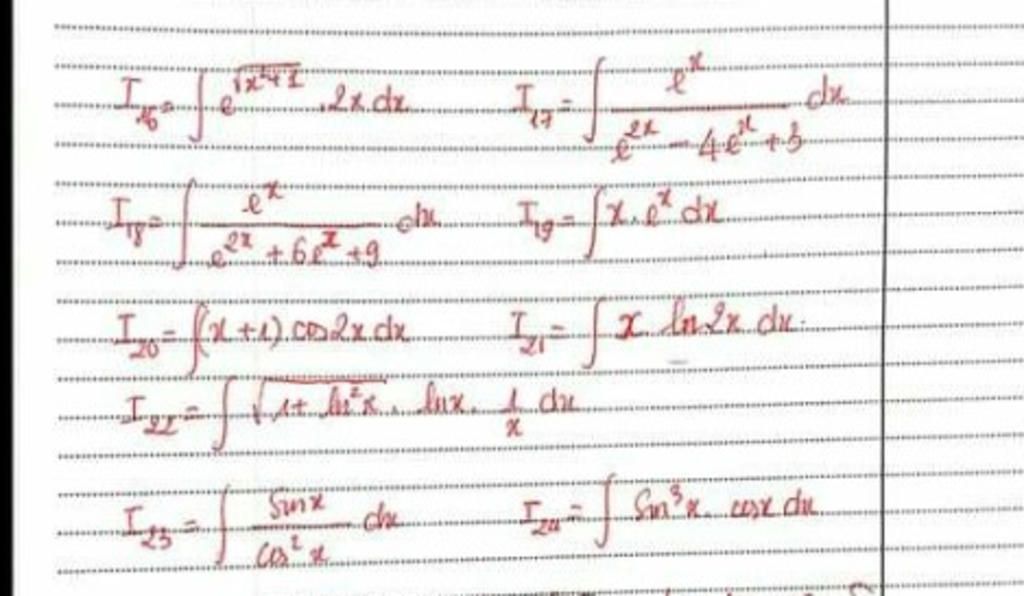 I₁₆ = ∫ e^√(x²+1) . 2x dx    I₁₇ = ∫ e^x / (e^2x - 4e^x + 3) dx
I₁₈ = ∫ e^x / (e^2x + 6e^x + 9) dx    I₁₉ = ∫ x . e^x dx
I₂₀ = ∫ (x + 1) cos2x dx    I₂₁ = ∫ x ln 2x dx.
I₂₂ = ∫ √(1 + ln²x) . lnx . 1/x dx
I₂₃ = ∫ Sinx / cos²x dx    I₂₄ = ∫ Sin³x . cosx dx